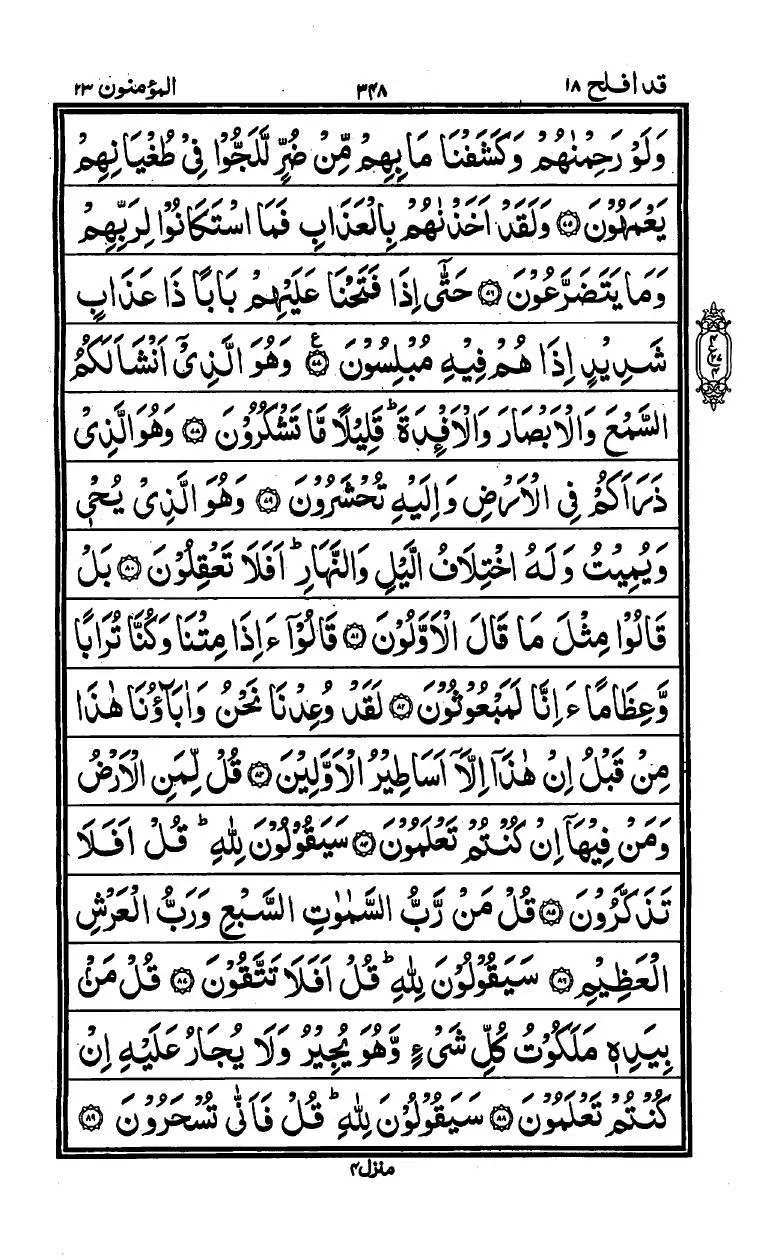 قد افلح ۱۸ ۳۴۸ المؤمنون ۲۳
وَلَوْ رَحِمْنٰهُمْ وَكَشَفْنَا مَا بِهِمْ مِّنْ ضُرٍّ لَّلَجُّوْا فِیْ طُغْیَانِهِمْ
یَعْمَهُوْنَ ۝۷۵ وَلَقَدْ اَخَذْنٰهُمْ بِالْعَذَابِ فَمَا اسْتَكَانُوْا لِرَبِّهِمْ
وَمَا یَتَضَرَّعُوْنَ ۝۷۶ حَتّٰۤی اِذَا فَتَحْنَا عَلَیْهِمْ بَابًا ذَا عَذَابٍ
شَدِیْدٍ اِذَا هُمْ فِیْهِ مُبْلِسُوْنَ ۝۷۷ ع وَهُوَ الَّذِیْۤ اَنْشَاَ لَكُمُ
السَّمْعَ وَالْاَبْصَارَ وَالْاَفْـِٕدَةَ ؕ قَلِیْلًا مَّا تَشْكُرُوْنَ ۝۷۸ وَهُوَ الَّذِیْ
ذَرَاَكُمْ فِی الْاَرْضِ وَاِلَیْهِ تُحْشَرُوْنَ ۝۷۹ وَهُوَ الَّذِیْ یُحْیٖ
وَیُمِیْتُ وَلَهُ اخْتِلَافُ الَّیْلِ وَالنَّهَارِ ؕ اَفَلَا تَعْقِلُوْنَ ۝۸۰ بَلْ
قَالُوْا مِثْلَ مَا قَالَ الْاَوَّلُوْنَ ۝۸۱ قَالُوْۤا ءَاِذَا مِتْنَا وَكُنَّا تُرَابًا
وَّعِظَامًا ءَاِنَّا لَمَبْعُوْثُوْنَ ۝۸۲ لَقَدْ وُعِدْنَا نَحْنُ وَاٰبَآؤُنَا هٰذَا
مِنْ قَبْلُ اِنْ هٰذَاۤ اِلَّاۤ اَسَاطِیْرُ الْاَوَّلِیْنَ ۝۸۳ قُلْ لِّمَنِ الْاَرْضُ
وَمَنْ فِیْهَاۤ اِنْ كُنْتُمْ تَعْلَمُوْنَ ۝۸۴ سَیَقُوْلُوْنَ لِلّٰهِ ؕ قُلْ اَفَلَا
تَذَكَّرُوْنَ ۝۸۵ قُلْ مَنْ رَّبُّ السَّمٰوٰتِ السَّبْعِ وَرَبُّ الْعَرْشِ
الْعَظِیْمِ ۝۸۶ سَیَقُوْلُوْنَ لِلّٰهِ ؕ قُلْ اَفَلَا تَتَّقُوْنَ ۝۸۷ قُلْ مَنْۢ
بِیَدِهٖ مَلَكُوْتُ كُلِّ شَیْءٍ وَّهُوَ یُجِیْرُ وَلَا یُجَارُ عَلَیْهِ اِنْ
كُنْتُمْ تَعْلَمُوْنَ ۝۸۸ سَیَقُوْلُوْنَ لِلّٰهِ ؕ قُلْ فَاَنّٰی تُسْحَرُوْنَ ۝۸۹
منزل۴